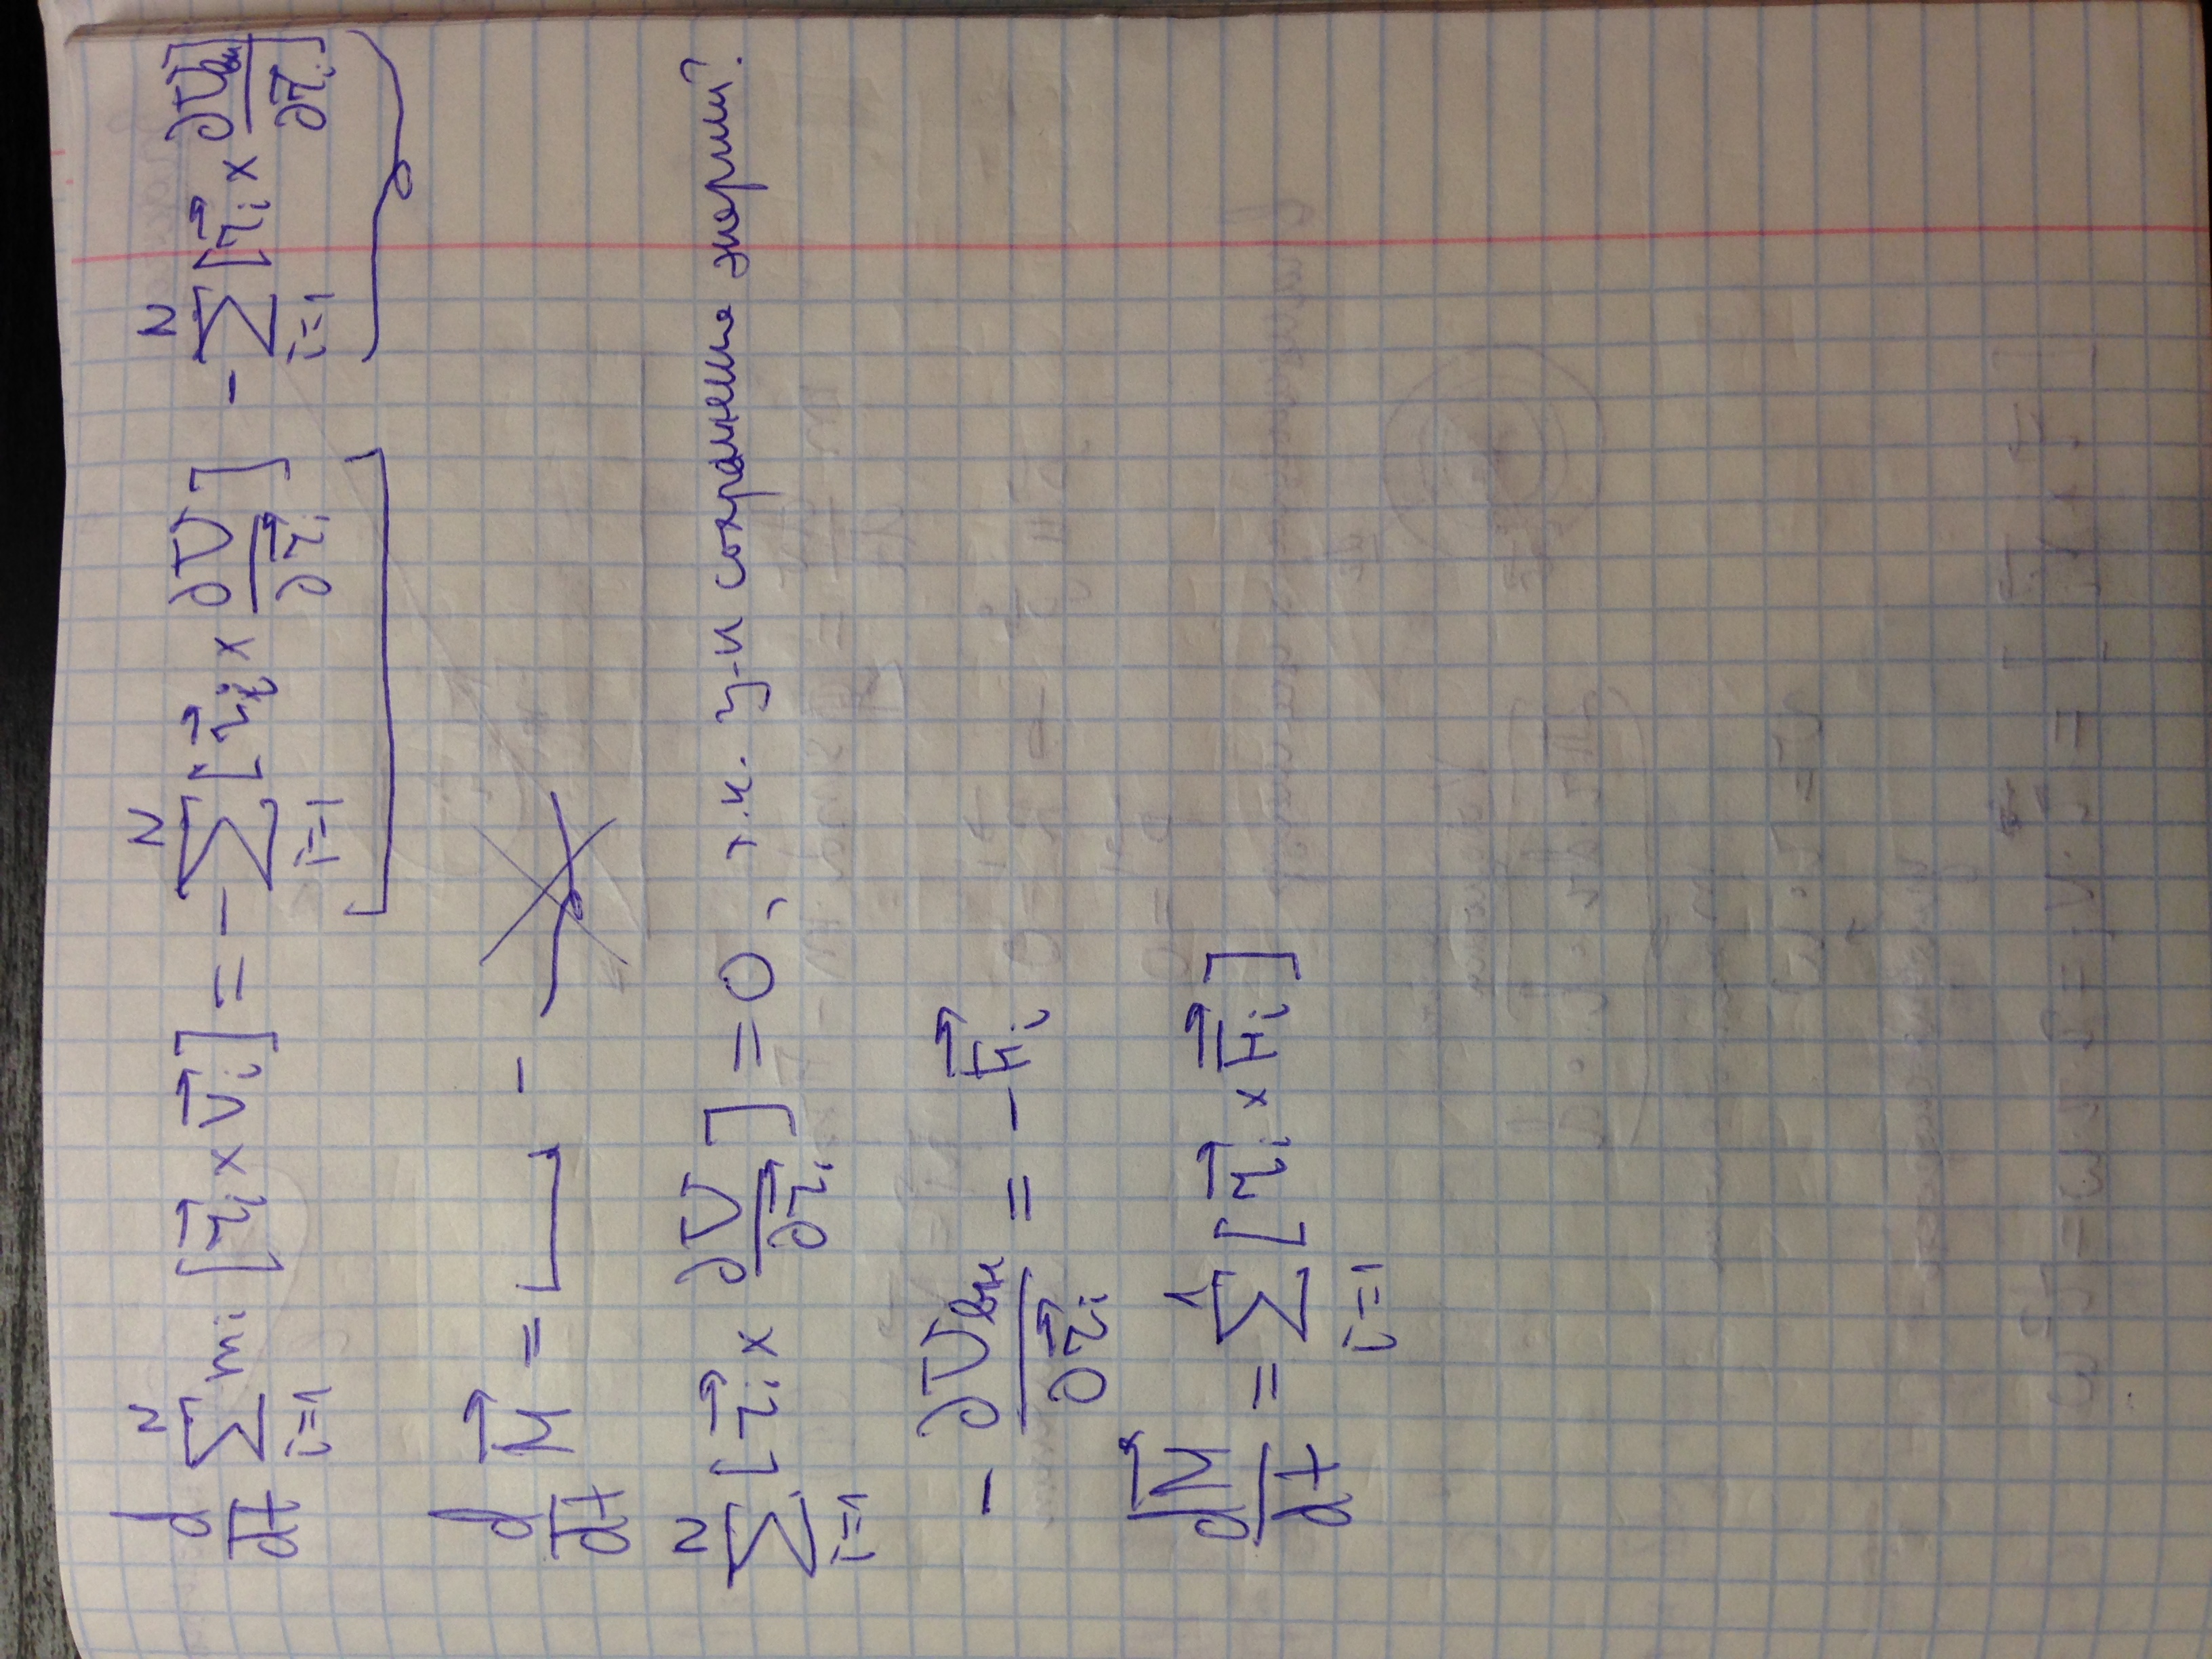 d/dt ∑_{i=1}^{N} m_i [r⃗_i × v⃗_i] = - ∑_{i=1}^{N} [r⃗_i × ∂U/∂r⃗_i] - ∑_{i=1}^{N} [r⃗_i × ∂U_{вн}/∂r⃗_i]
d/dt M⃗ = ⎵ -
∑_{i=1}^{N} [r⃗_i × ∂U/∂r⃗_i] = 0, т.к. з-н сохранения энергии?
- ∂U_{вн}/∂r⃗_i = - F⃗_i
dM⃗/dt = ∑_{i=1} [r⃗_i × F⃗_i]